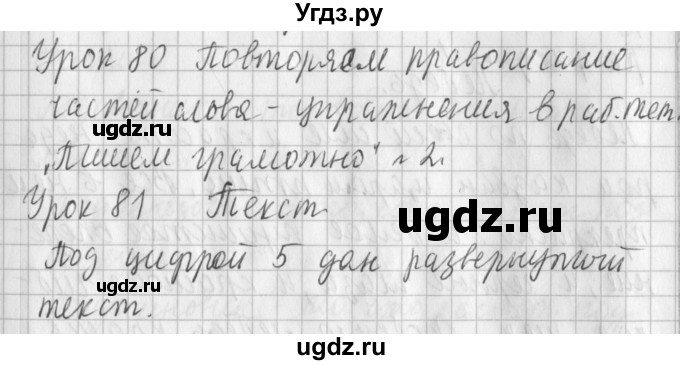 Угдз.ру
Урок 80 Повторяем правописание
частей слова - упражнения в раб. тет.
"Пишем грамотно" №2.
Урок 81 Текст
Под цифрой 5 дан развернутый
текст.
ugdz.ru
ugdz.ru
ugdz.ru
ugdz.ru